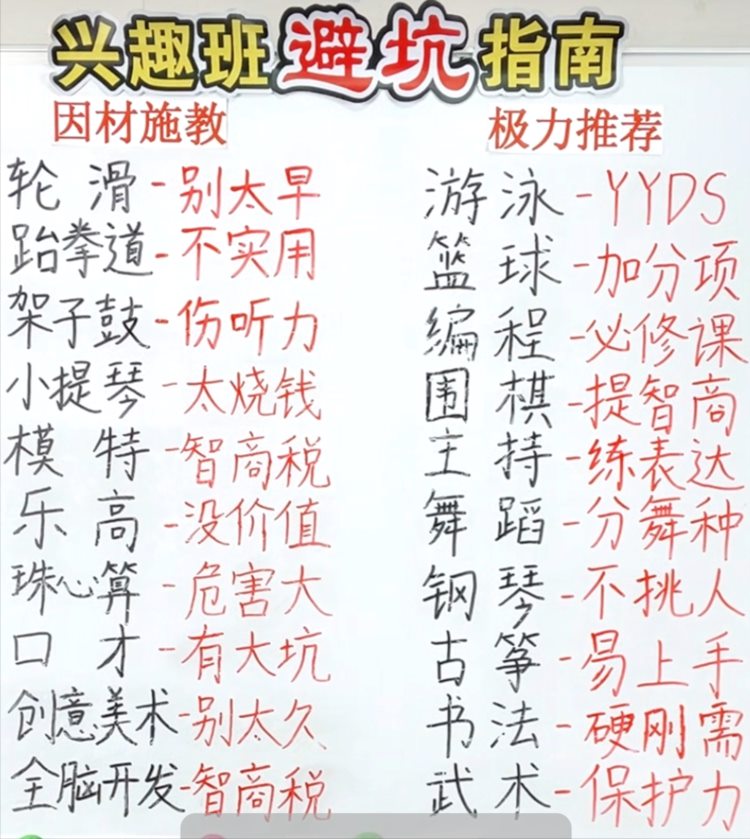 兴趣班避坑指南
因材施教
轮滑-别太早
跆拳道-不实用
架子鼓-伤听力
小提琴-太烧钱
模特-智商税
乐高-没价值
珠心算-危害大
口才-有大坑
创意美术-别太久
全脑开发-智商税
极力推荐
游泳-YYDS
篮球-加分项
编程-必修课
围棋-提智商
主持-练表达
舞蹈-分舞种
钢琴-不挑人
古筝-易上手
书法-硬刚需
武术-保护力